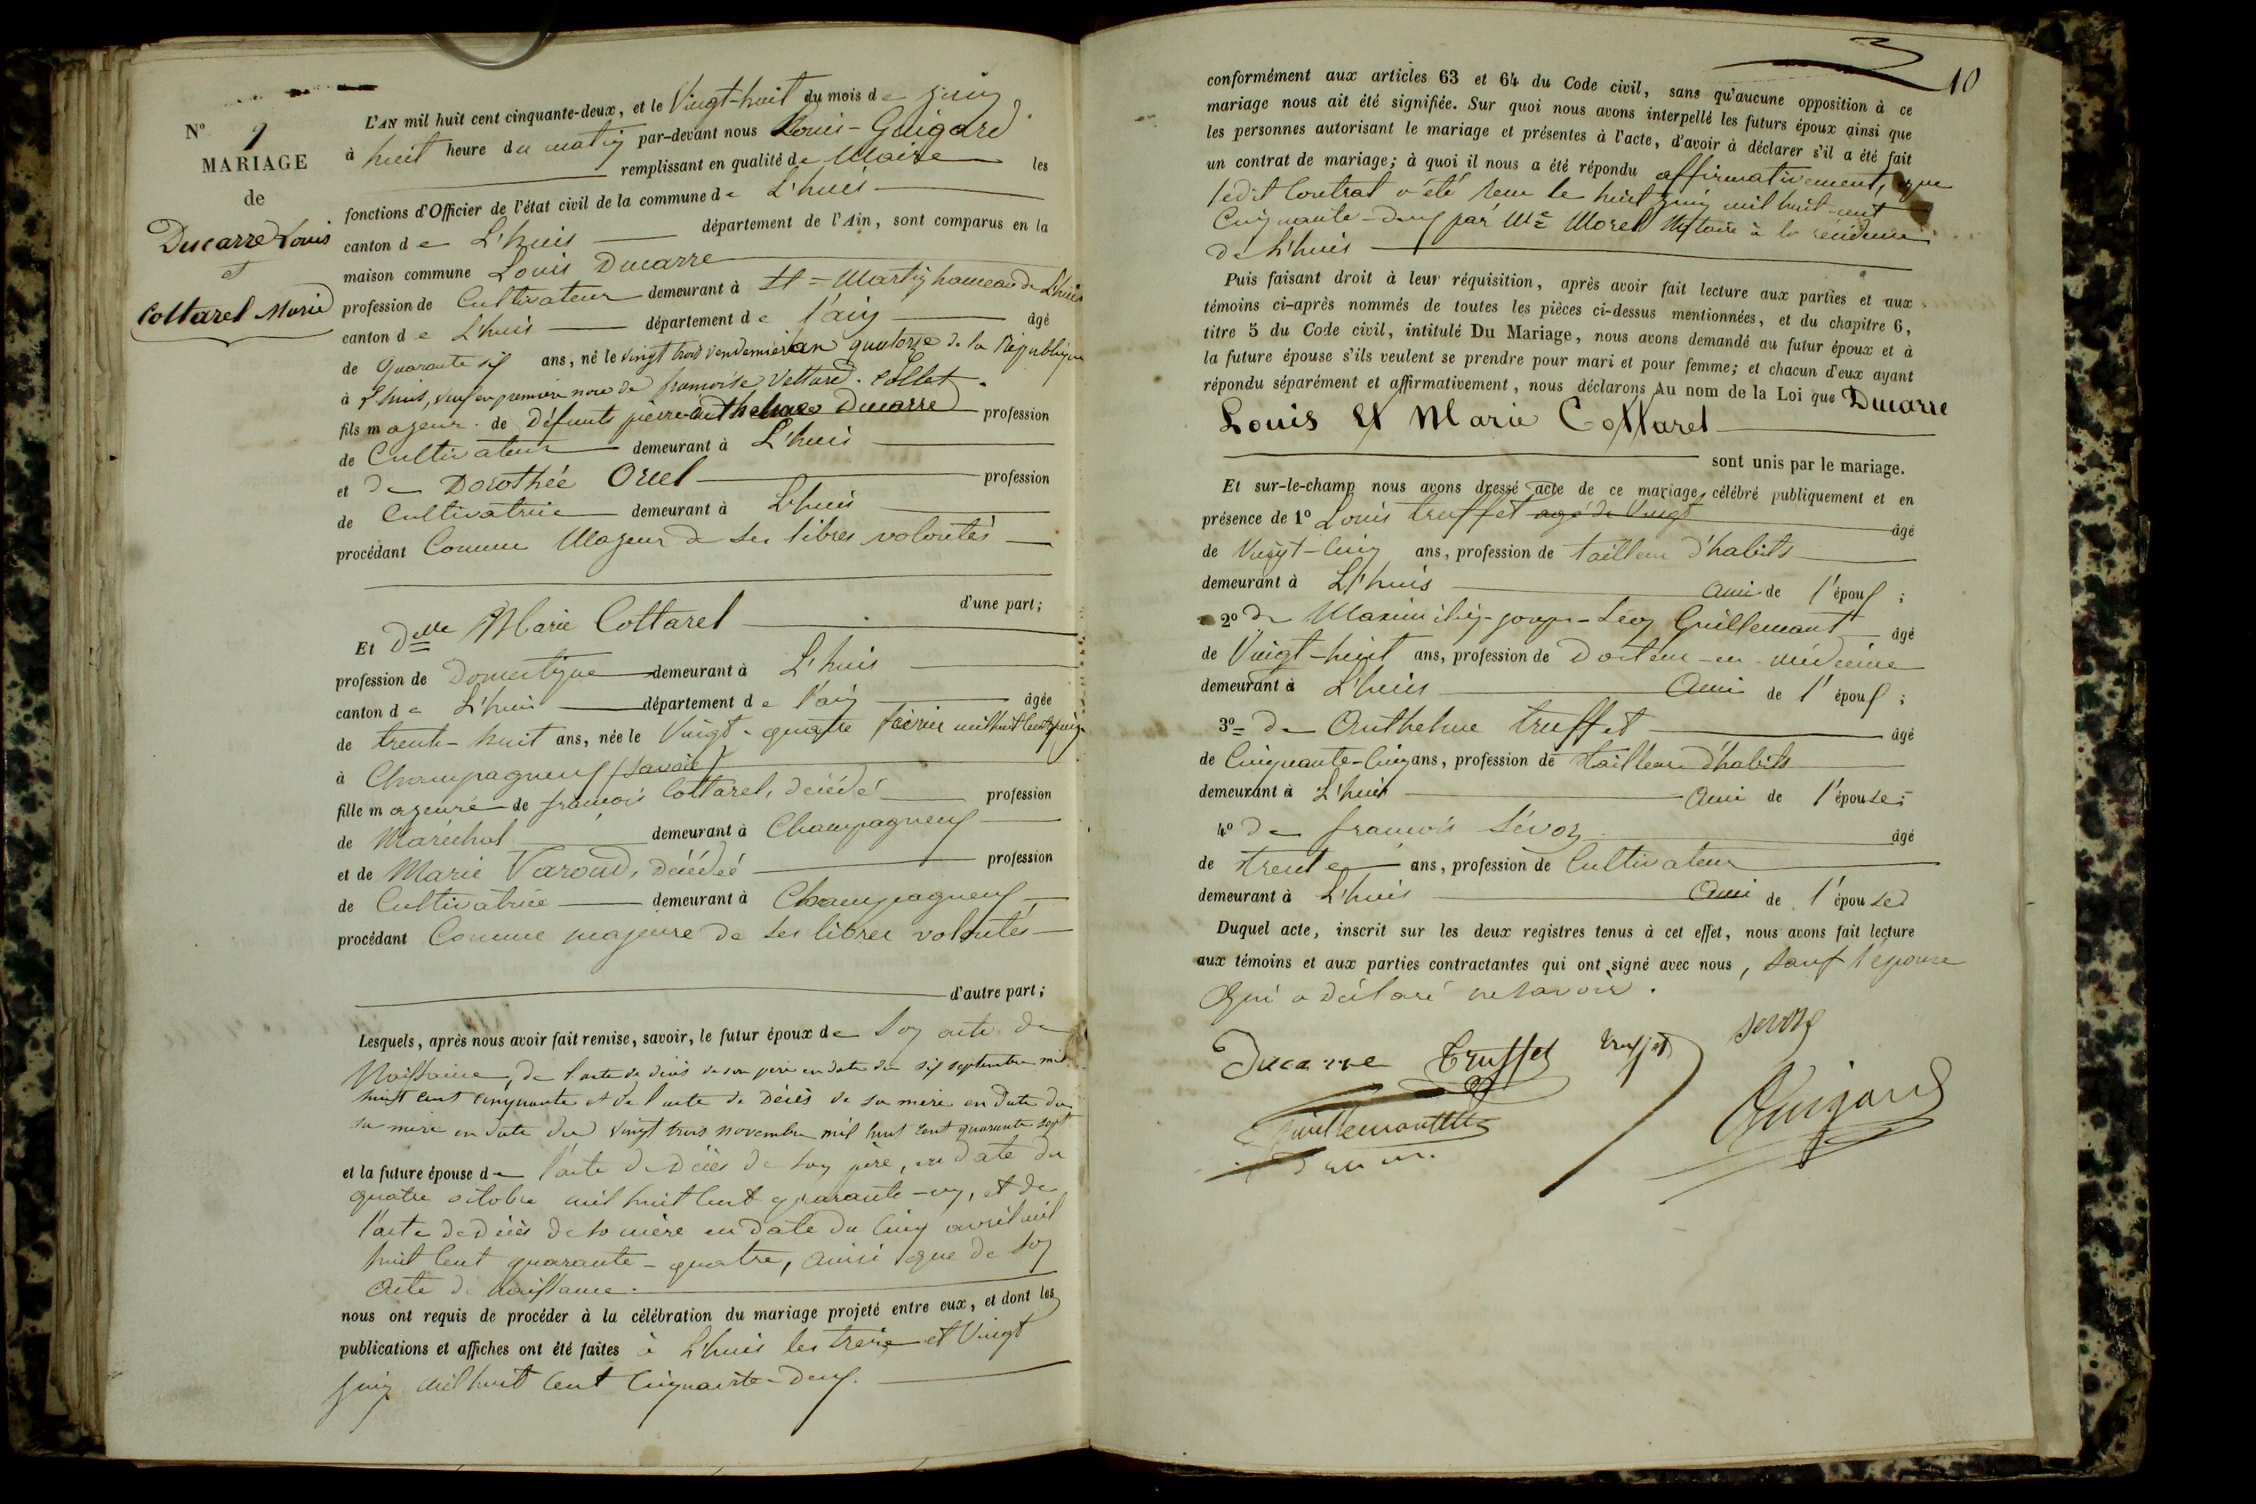 Nº 9
MARIAGE
de
Ducarre Louis
et
Cottarel Marie
L'AN mil huit cent cinquante-deux, et le Vingt-huit du mois de juin
à huit heure du matin par-devant nous Louis-Guigard
remplissant en qualité de Maire les
fonctions d'Officier de l'état civil de la commune de L'huis
canton de L'huis département de l'Ain, sont comparus en la
maison commune Louis Ducarre
profession de Cultivateur demeurant à St-Martin hameau de L'huis
canton de L'huis département de l'ain âgé
de Quarante six ans, né le vingt trois vendemier an quatorze de la République
à L'huis, veuf en première noce de françoise Vettard. Collet.
fils majeur de Défunts pierre anthelme Ducarre profession
de Cultivateur demeurant à L'huis
et de Dorothée Orcel profession
de Cultivatrice demeurant à L'huis
procédant Comme Majeur de ses libres volontés
d'une part;
Et Delle Marie Cottarel
profession de Domestique demeurant à L'huis
canton de L'huis département de l'ain âgée
de trente-huit ans, née le Vingt-quatre février mil huit cent
à Champagneux (Savoie)
fille majeure de françois Cottarel, décédé profession
de Maréchal demeurant à Champagneux
et de Marie Varoud, décédée profession
de Cultivatrice demeurant à Champagneux
procédant Comme majeure de ses libres volontés
d'autre part;
Lesquels, après nous avoir fait remise, savoir, le futur époux de son acte de
Naissance, de l'acte de décès de son père en date du six septembre mil
huit cent cinquante et de l'acte de Décès de sa mère en date du
sa mère en date du vingt trois novembre mil huit cent quarante sept
et la future épouse de l'acte de Décès de son père, en date du
quatre octobre mil huit cent quarante-un, et de
l'acte de décès de sa mère en date du cinq avril mil
huit cent quarante-quatre, ainsi que de son
acte de naissance.
nous ont requis de procéder à la célébration du mariage projeté entre eux, et dont les
publications et affiches ont été faites à L'huis les treize et Vingt
juin mil huit cent cinquante-deux.
10
conformément aux articles 63 et 64 du Code civil, sans qu'aucune opposition à ce
mariage nous ait été signifiée. Sur quoi nous avons interpellé les futurs époux ainsi que
les personnes autorisant le mariage et présentes à l'acte, d'avoir à déclarer s'il a été fait
un contrat de mariage; à quoi il nous a été répondu affirmativement, que
ledit Contrat a été reçu le huit juin mil huit cent
Cinquante-deux par Me Morel Notaire à la résidence
de L'huis
Puis faisant droit à leur réquisition, après avoir fait lecture aux parties et aux
témoins ci-après nommés de toutes les pièces ci-dessus mentionnées, et du chapitre 6,
titre 5 du Code civil, intitulé Du Mariage, nous avons demandé au futur époux et à
la future épouse s'ils veulent se prendre pour mari et pour femme; et chacun d'eux ayant
répondu séparément et affirmativement, nous déclarons Au nom de la Loi que Ducarre
Louis Et Marie Cottarel
sont unis par le mariage.
Et sur-le-champ nous avons dressé acte de ce mariage célébré publiquement et en
présence de 1º Louis truffet agé de Vingt âgé
de Vingt-cinq ans, profession de tailleur d'habits
demeurant à L'huis ami de l'époux;
2º de Maximilien-joseph-Léon Guillemant âgé
de Vingt-huit ans, profession de Docteur-en-médecine
demeurant à L'huis Ami de l'époux;
3º de Anthelme truffet âgé
de Cinquante-Cinq ans, profession de tailleur d'habits
demeurant à L'huis Ami de l'épouse;
4º de françois Sévoz âgé
de trente ans, profession de Cultivateur
demeurant à L'huis Ami de l'épouse
Duquel acte, inscrit sur les deux registres tenus à cet effet, nous avons fait lecture
aux témoins et aux parties contractantes qui ont signé avec nous, sauf l'épouse
qui a déclaré ne savoir.
Ducarre Truffet truffet Sevoz
Guillemant Guigard